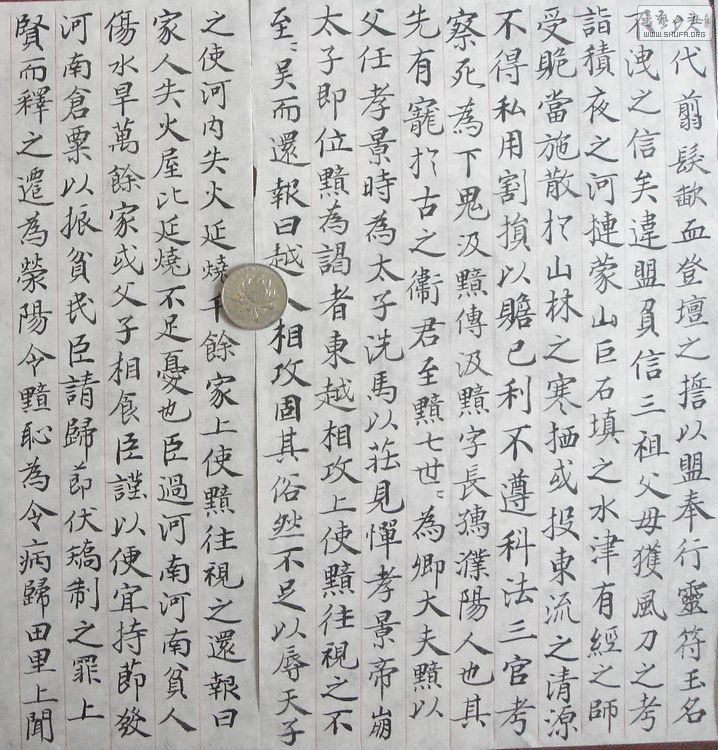 代翦髮歃血登壇之誓以盟奉行靈符玉名
不洩之信矣違盟負信三祖父母獲風刀之考
詣積夜之河摙蒙山巨石填之水津有經之師
受貺當施散於山林之寒栖或投東流之清源
不得私用割損以贍己利不遵科法三官考
察死為下鬼汲黯傳汲黯字長孺濮陽人也其
先有寵於古之衞君至黯七世〻為卿大夫黯以
父任孝景時為太子洗馬以莊見憚孝景帝崩
太子即位黯為謁者東越相攻上使黯往視之不
至〻吴而還報曰越人相攻固其俗然不足以辱天子
之使河内失火延燒千餘家上使黯往視之還報曰
家人失火屋比延燒不足憂也臣過河南河南貧人
傷水旱萬餘家或父子相食臣謹以便宜持節發
河南倉粟以振貧民臣請歸節伏矯制之罪上
賢而釋之遷為滎陽令黯恥為令病歸田里上聞
WWW.SHUFA.ORG